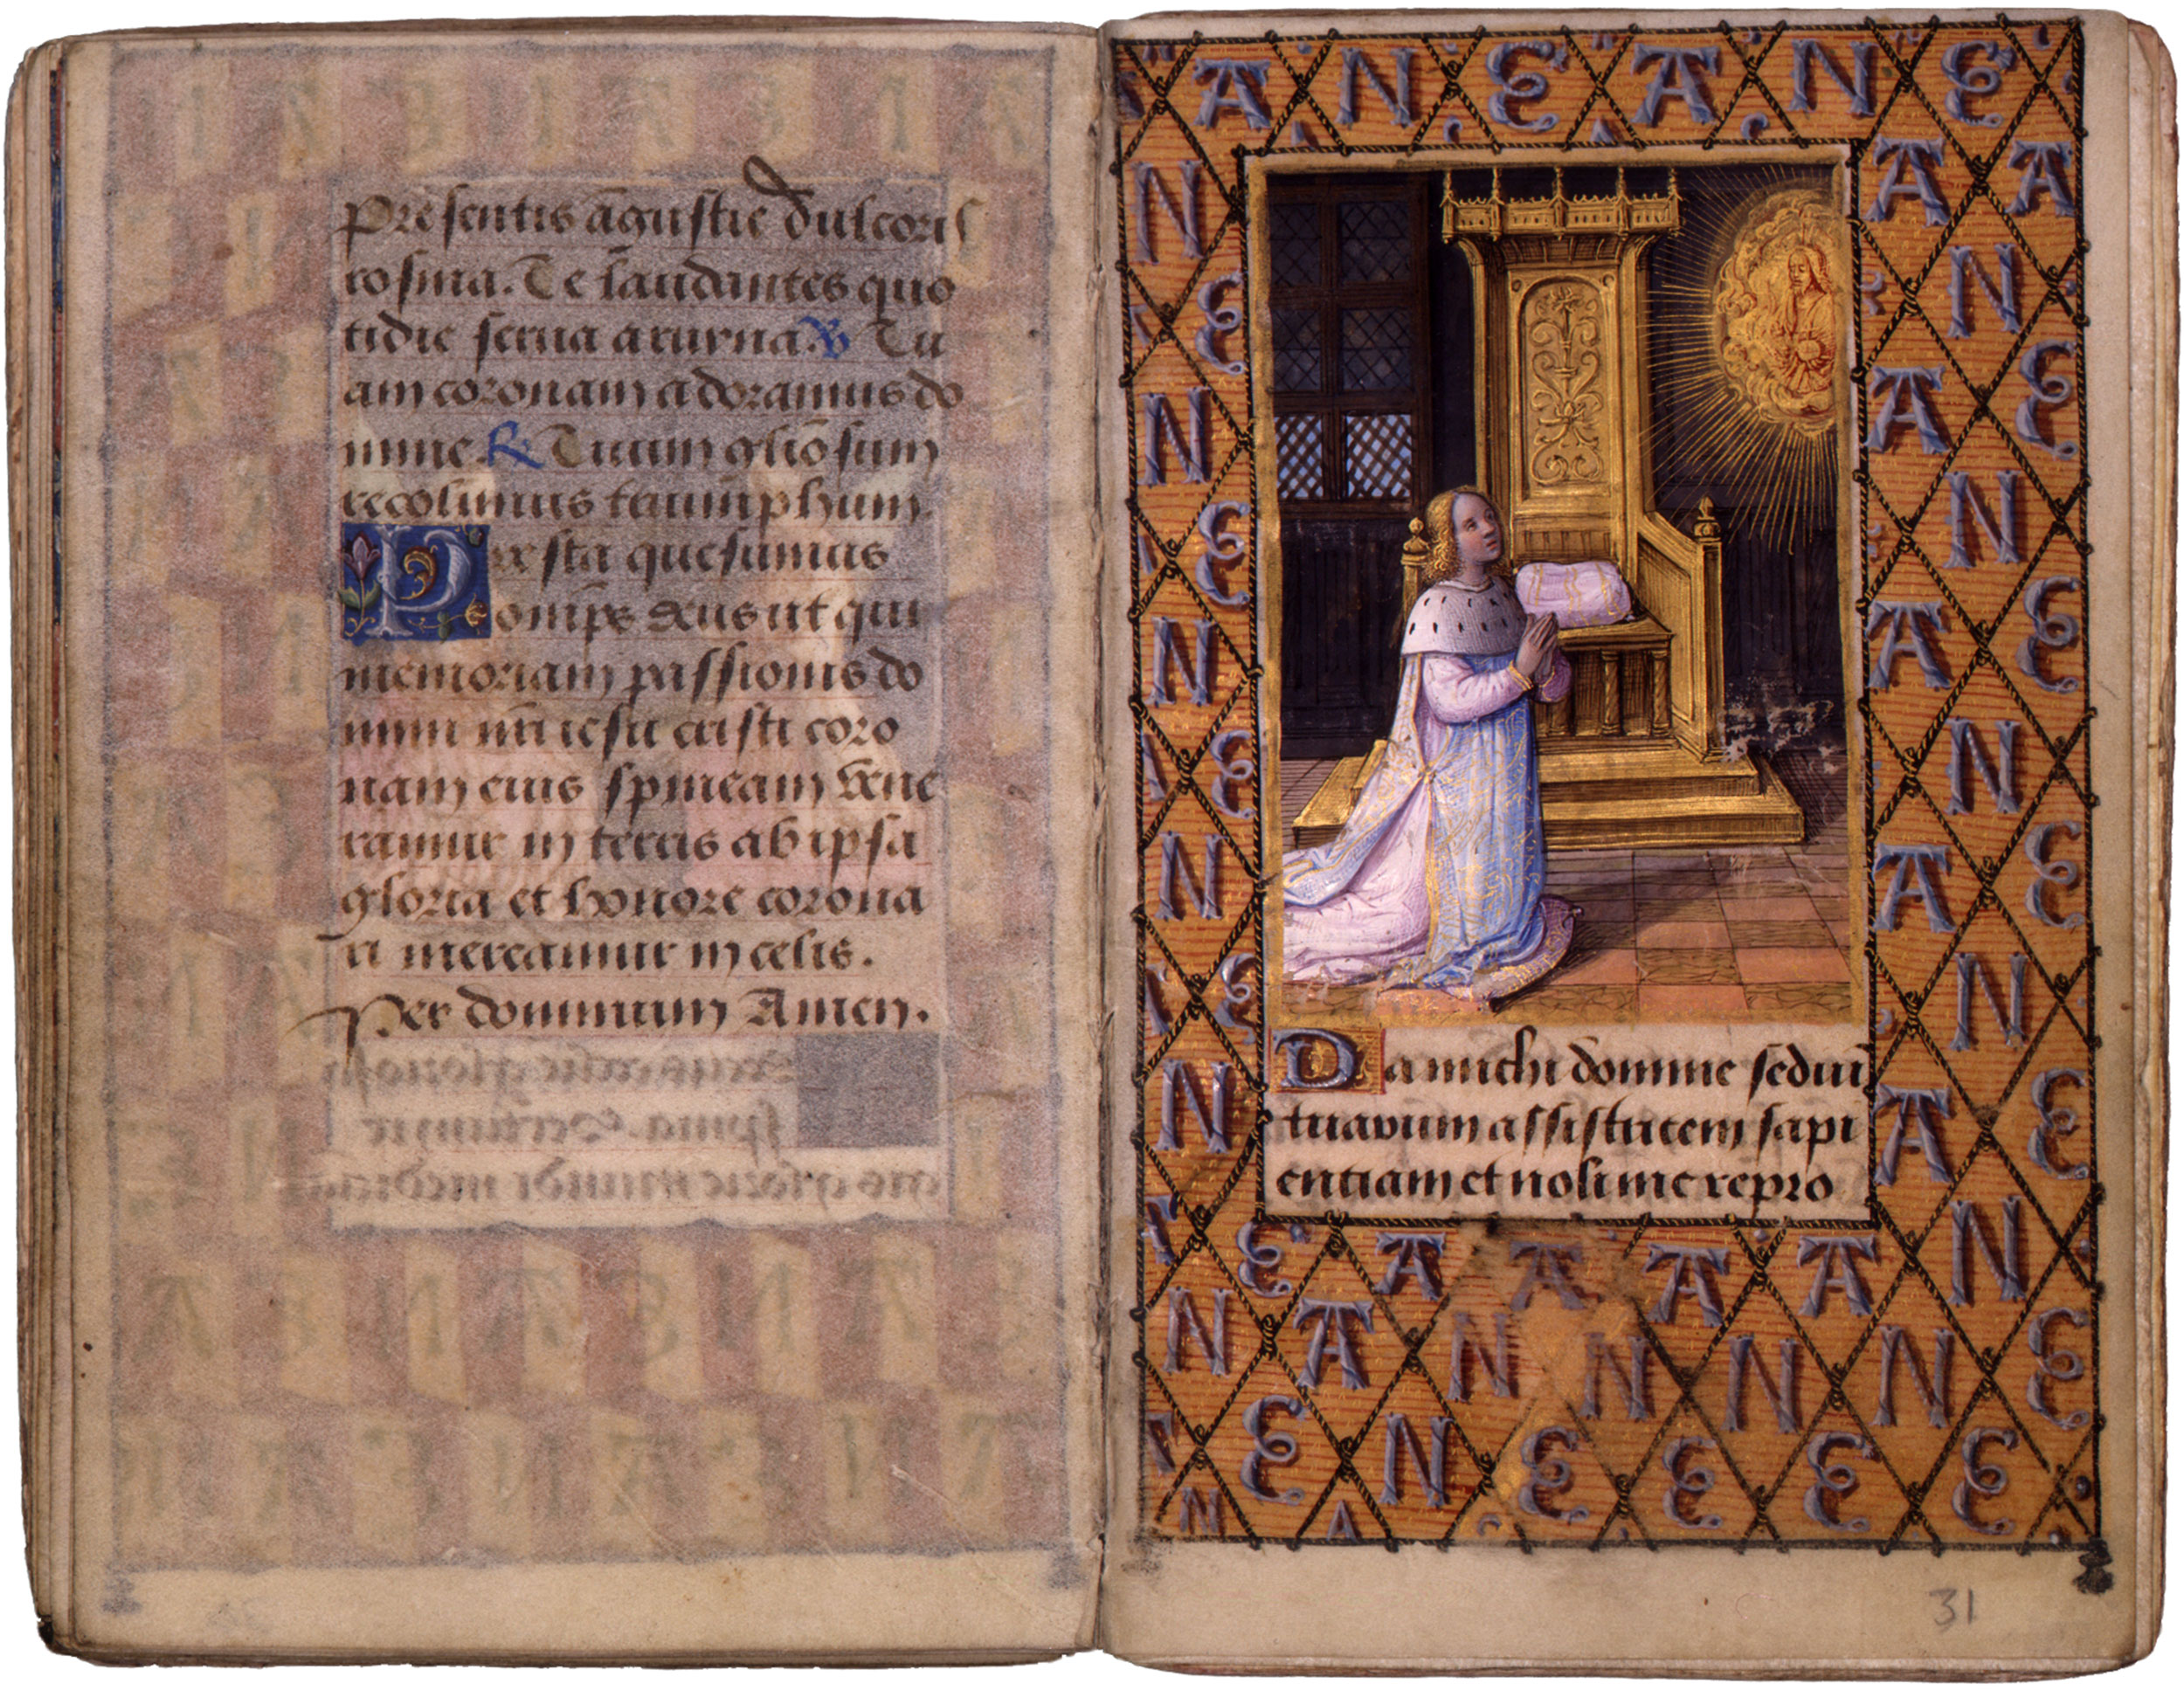 presentis āgustie dulcoris
rosina. Te laudantes quo
tidie serua a ruyna. ℣ Tu
am coronam adoramus do
mine ℟ Tuam gl̄iosam
recolimus triumphum.
Presta quesumus
om̄ps deus ut qui
memoriam passionis do
mini nr̄i iesu cristi coro
nam eius spineam vene
ramur in terris ab ipsa
gloria et honore corona
ri mereamur in celis.
Per dominum Amen.
A N E A N E
Da michi domine sediū
tuarum assistricem sapi
entiam et noli me repro
31